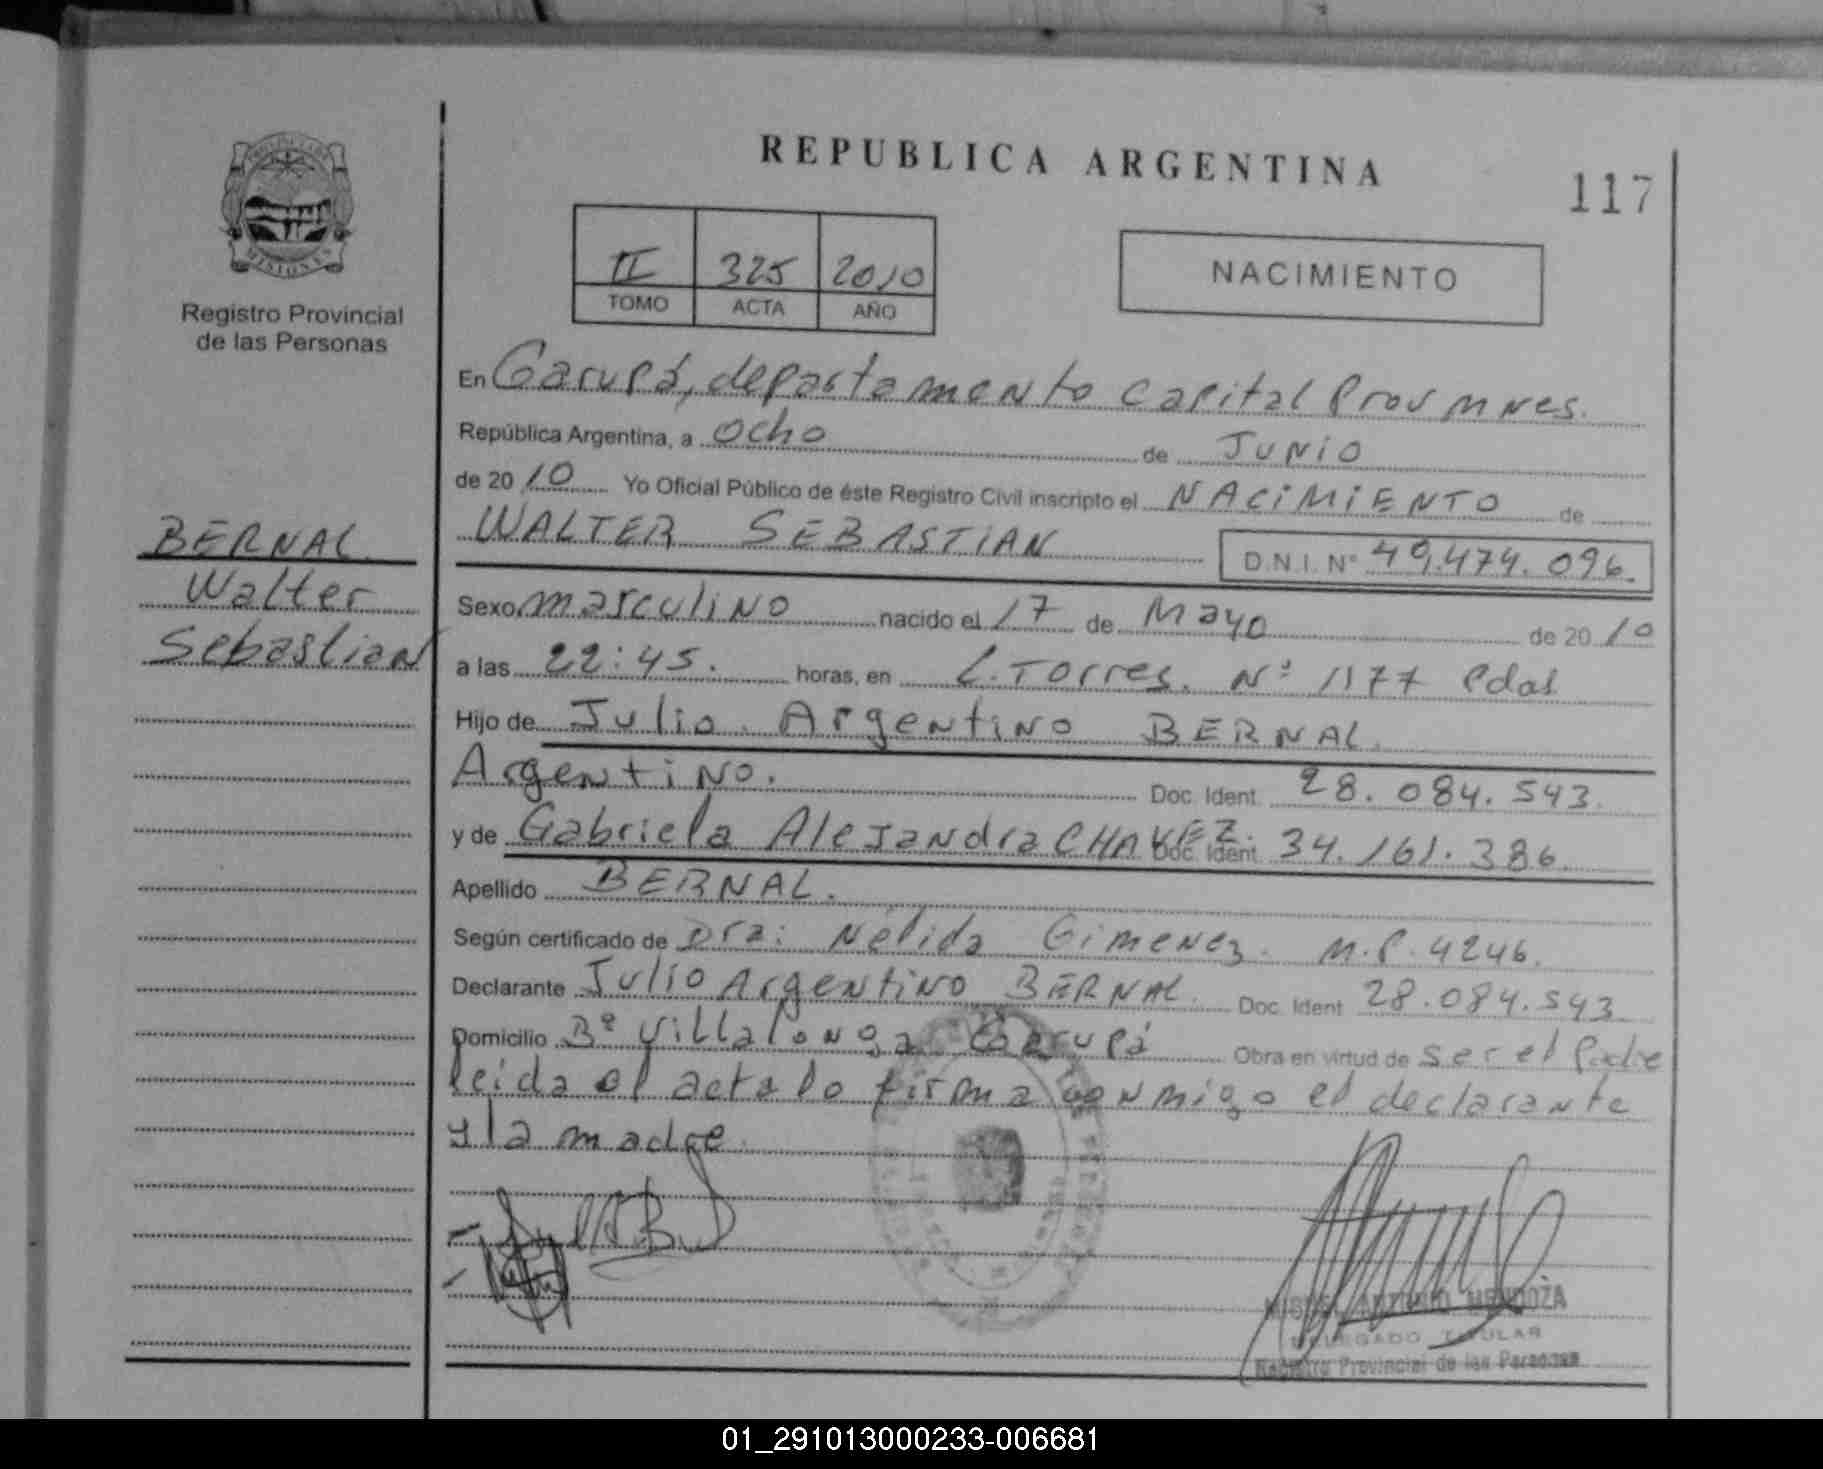 REPUBLICA ARGENTINA
117
PROVINCIA DE
MISIONES
Registro Provincial
de las Personas
II 325 2010
TOMO ACTA AÑO
NACIMIENTO
En Garupá, departamento capital Prov mnes.
República Argentina, a ocho de Junio
de 20 10 Yo Oficial Público de éste Registro Civil inscripto el NACIMIENTO de
WALTER SEBASTIAN D.N.I. N° 49.474.096.
BERNAL
Walter
Sebastian
Sexo masculino nacido el 17 de Mayo de 20 10
a las 22:45. horas, en L. Torres. N° 1177 Pdas
Hijo de Julio Argentino BERNAL.
Argentino. Doc. Ident. 28.084.543.
y de Gabriela Alejandra CHAVEZ. Doc. Ident. 34.161.386.
Apellido BERNAL.
Según certificado de Dra: Nélida Gimenez. M.P. 4246.
Declarante Julio Argentino BERNAL. Doc. Ident. 28.084.543
Domicilio B° Villalonga Garupá Obra en virtud de ser el Padre
leída el acta lo firma conmigo el declarante
y la madre.
MIGUEL ANTONIO MENDOZA
DELEGADO TITULAR
Registro Provincial de las Personas
01_291013000233-006681